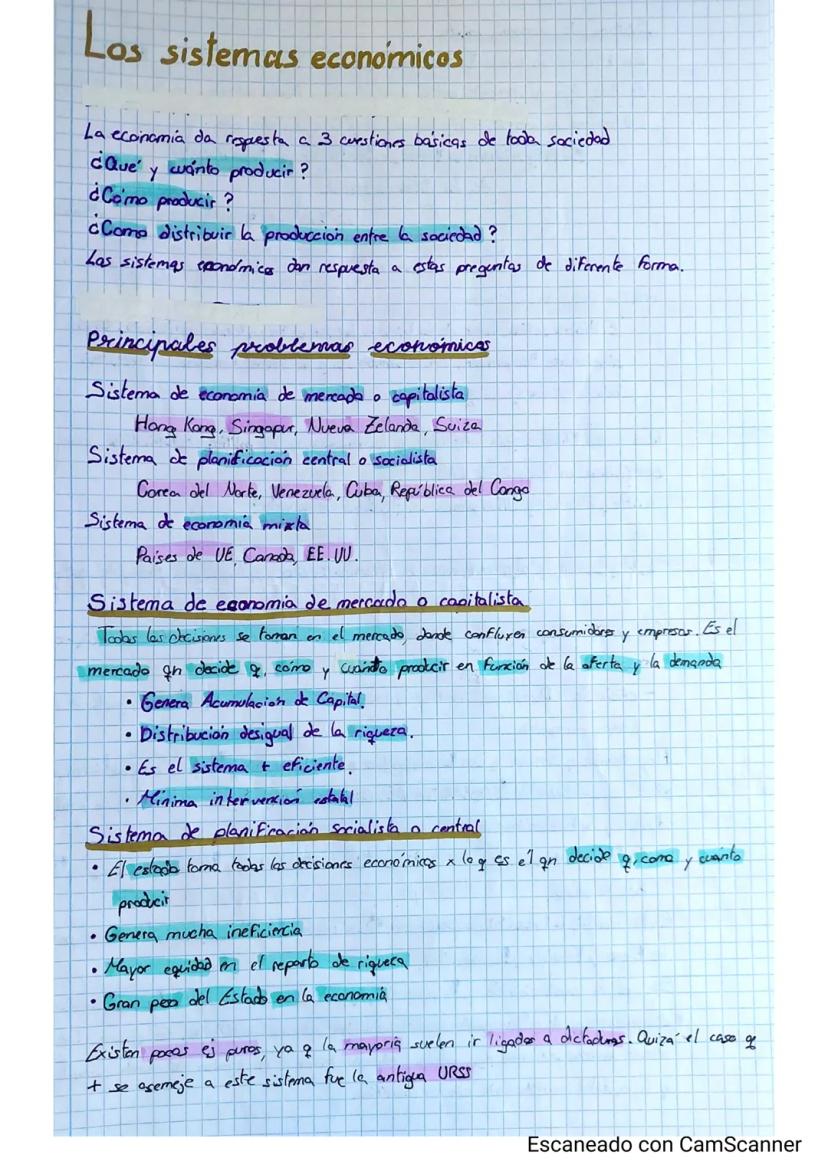 Los sistemas económicos
La economía da respuesta a 3 cuestiones básicas de toda sociedad
¿Qué y cuánto producir?
¿Cómo producir?
¿Como distribuir la producción entre la sociedad?
Los sistemas económicos dan respuesta a estas preguntas de diferente forma.
Principales problemas económicos
Sistema de economía de mercado o capitalista
Hong Kong, Singapur, Nueva Zelanda, Suiza
Sistema de planificación central o socialista
Corea del Norte, Venezuela, Cuba, República del Congo
Sistema de economía mixta
Países de UE, Canada, EE.UU.
Sistema de economía de mercado o capitalista
Todas las decisiones se toman en el mercado, donde confluyen consumidores y empresas. Es el
mercado qn decide q, cómo y cuánto producir en función de la oferta y la demanda
• Genera Acumulación de Capital.
• Distribución desigual de la riqueza.
• Es el sistema + eficiente.
• Mínima intervención estatal
Sistema de planificación socialista o central
• El estado toma todas las decisiones económicas x lo q es él qn decide q, como y cuánto
producir
• Genera mucha ineficiencia
• Mayor equidad en el reparto de riqueza
• Gran peso del Estado en la economía
Existen pocos ej puros, ya q la mayoría suelen ir ligados a dictaduras. Quizá el caso q
+ se asemeje a este sistema fue la antigua URSS
Escaneado con CamScanner